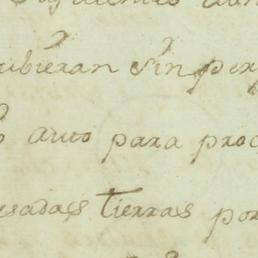 ubieran sin per
auto para proc
esadas tierras por